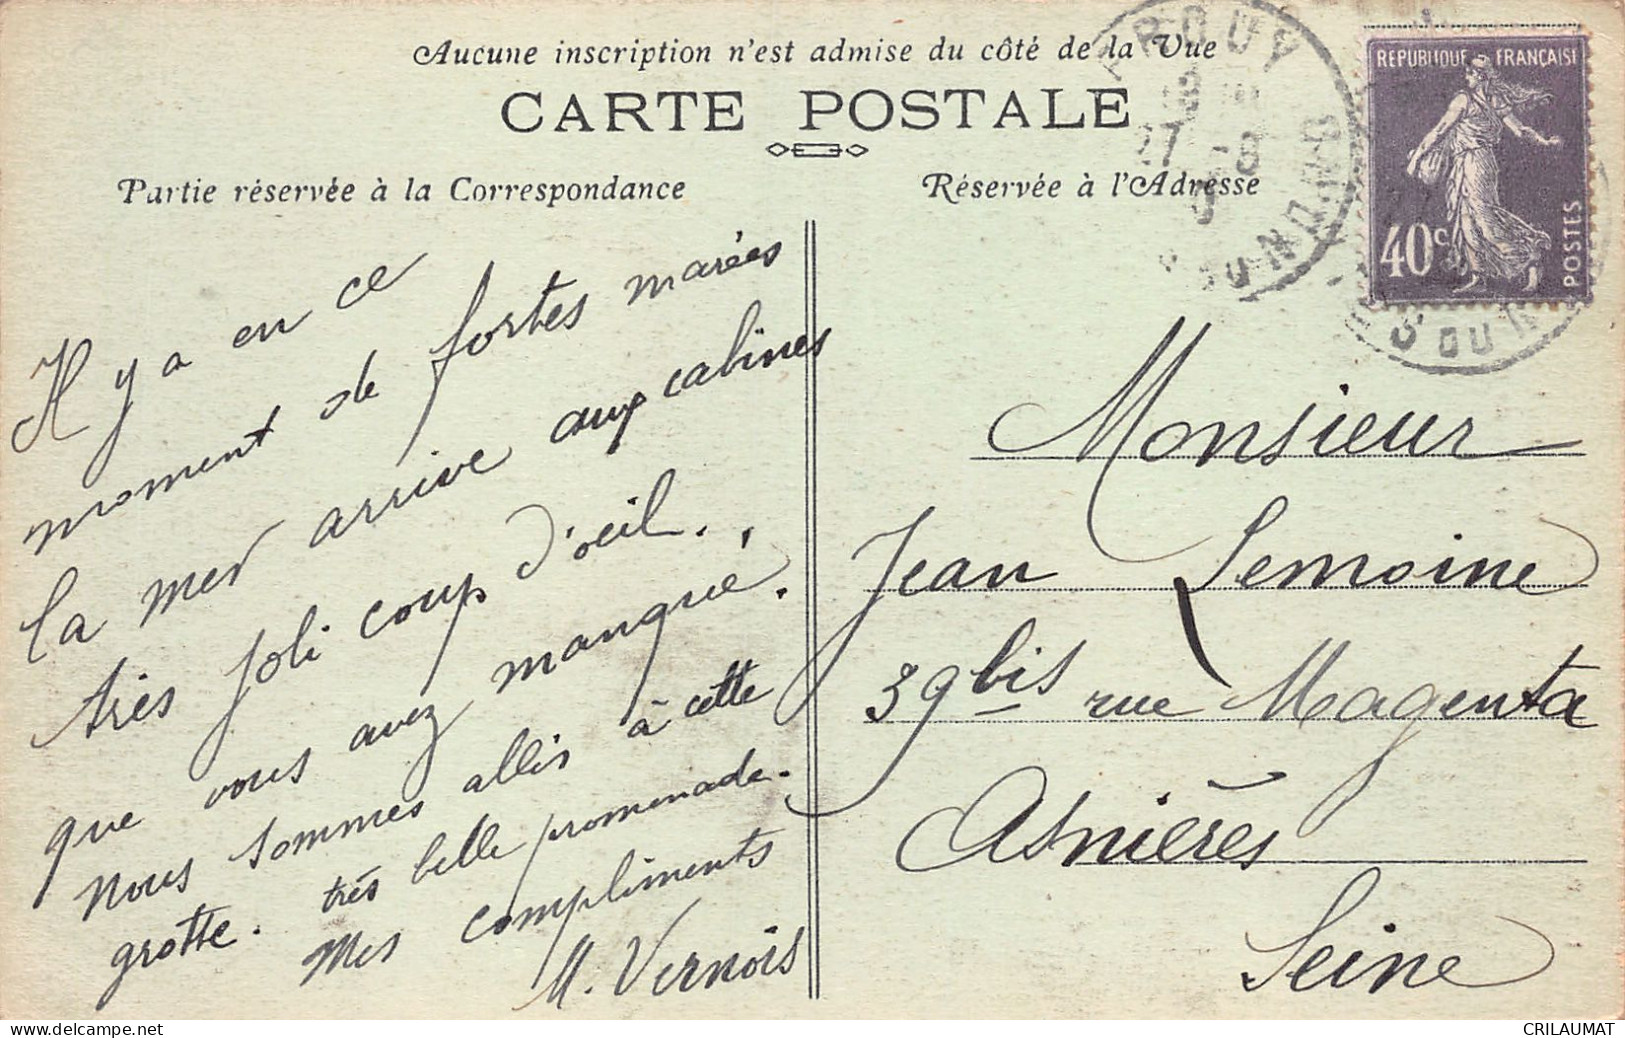 Aucune inscription n'est admise du côté de la Vue
CARTE POSTALE
Partie réservée à la Correspondance
Réservée à l'Adresse
REPUBLIQUE FRANÇAISE
40c
POSTES
Il y a en ce
moment de fortes marées
la mer arrive aux cabines
très joli coup d'oeil.
que vous avez manqué.
Nous sommes allés à cette
grotte. très belle promenade.
Mes compliments
M. Vernois
Monsieur
Jean Lemoine
39 bis rue Magenta
Asnières
Seine
CRILAUMAT